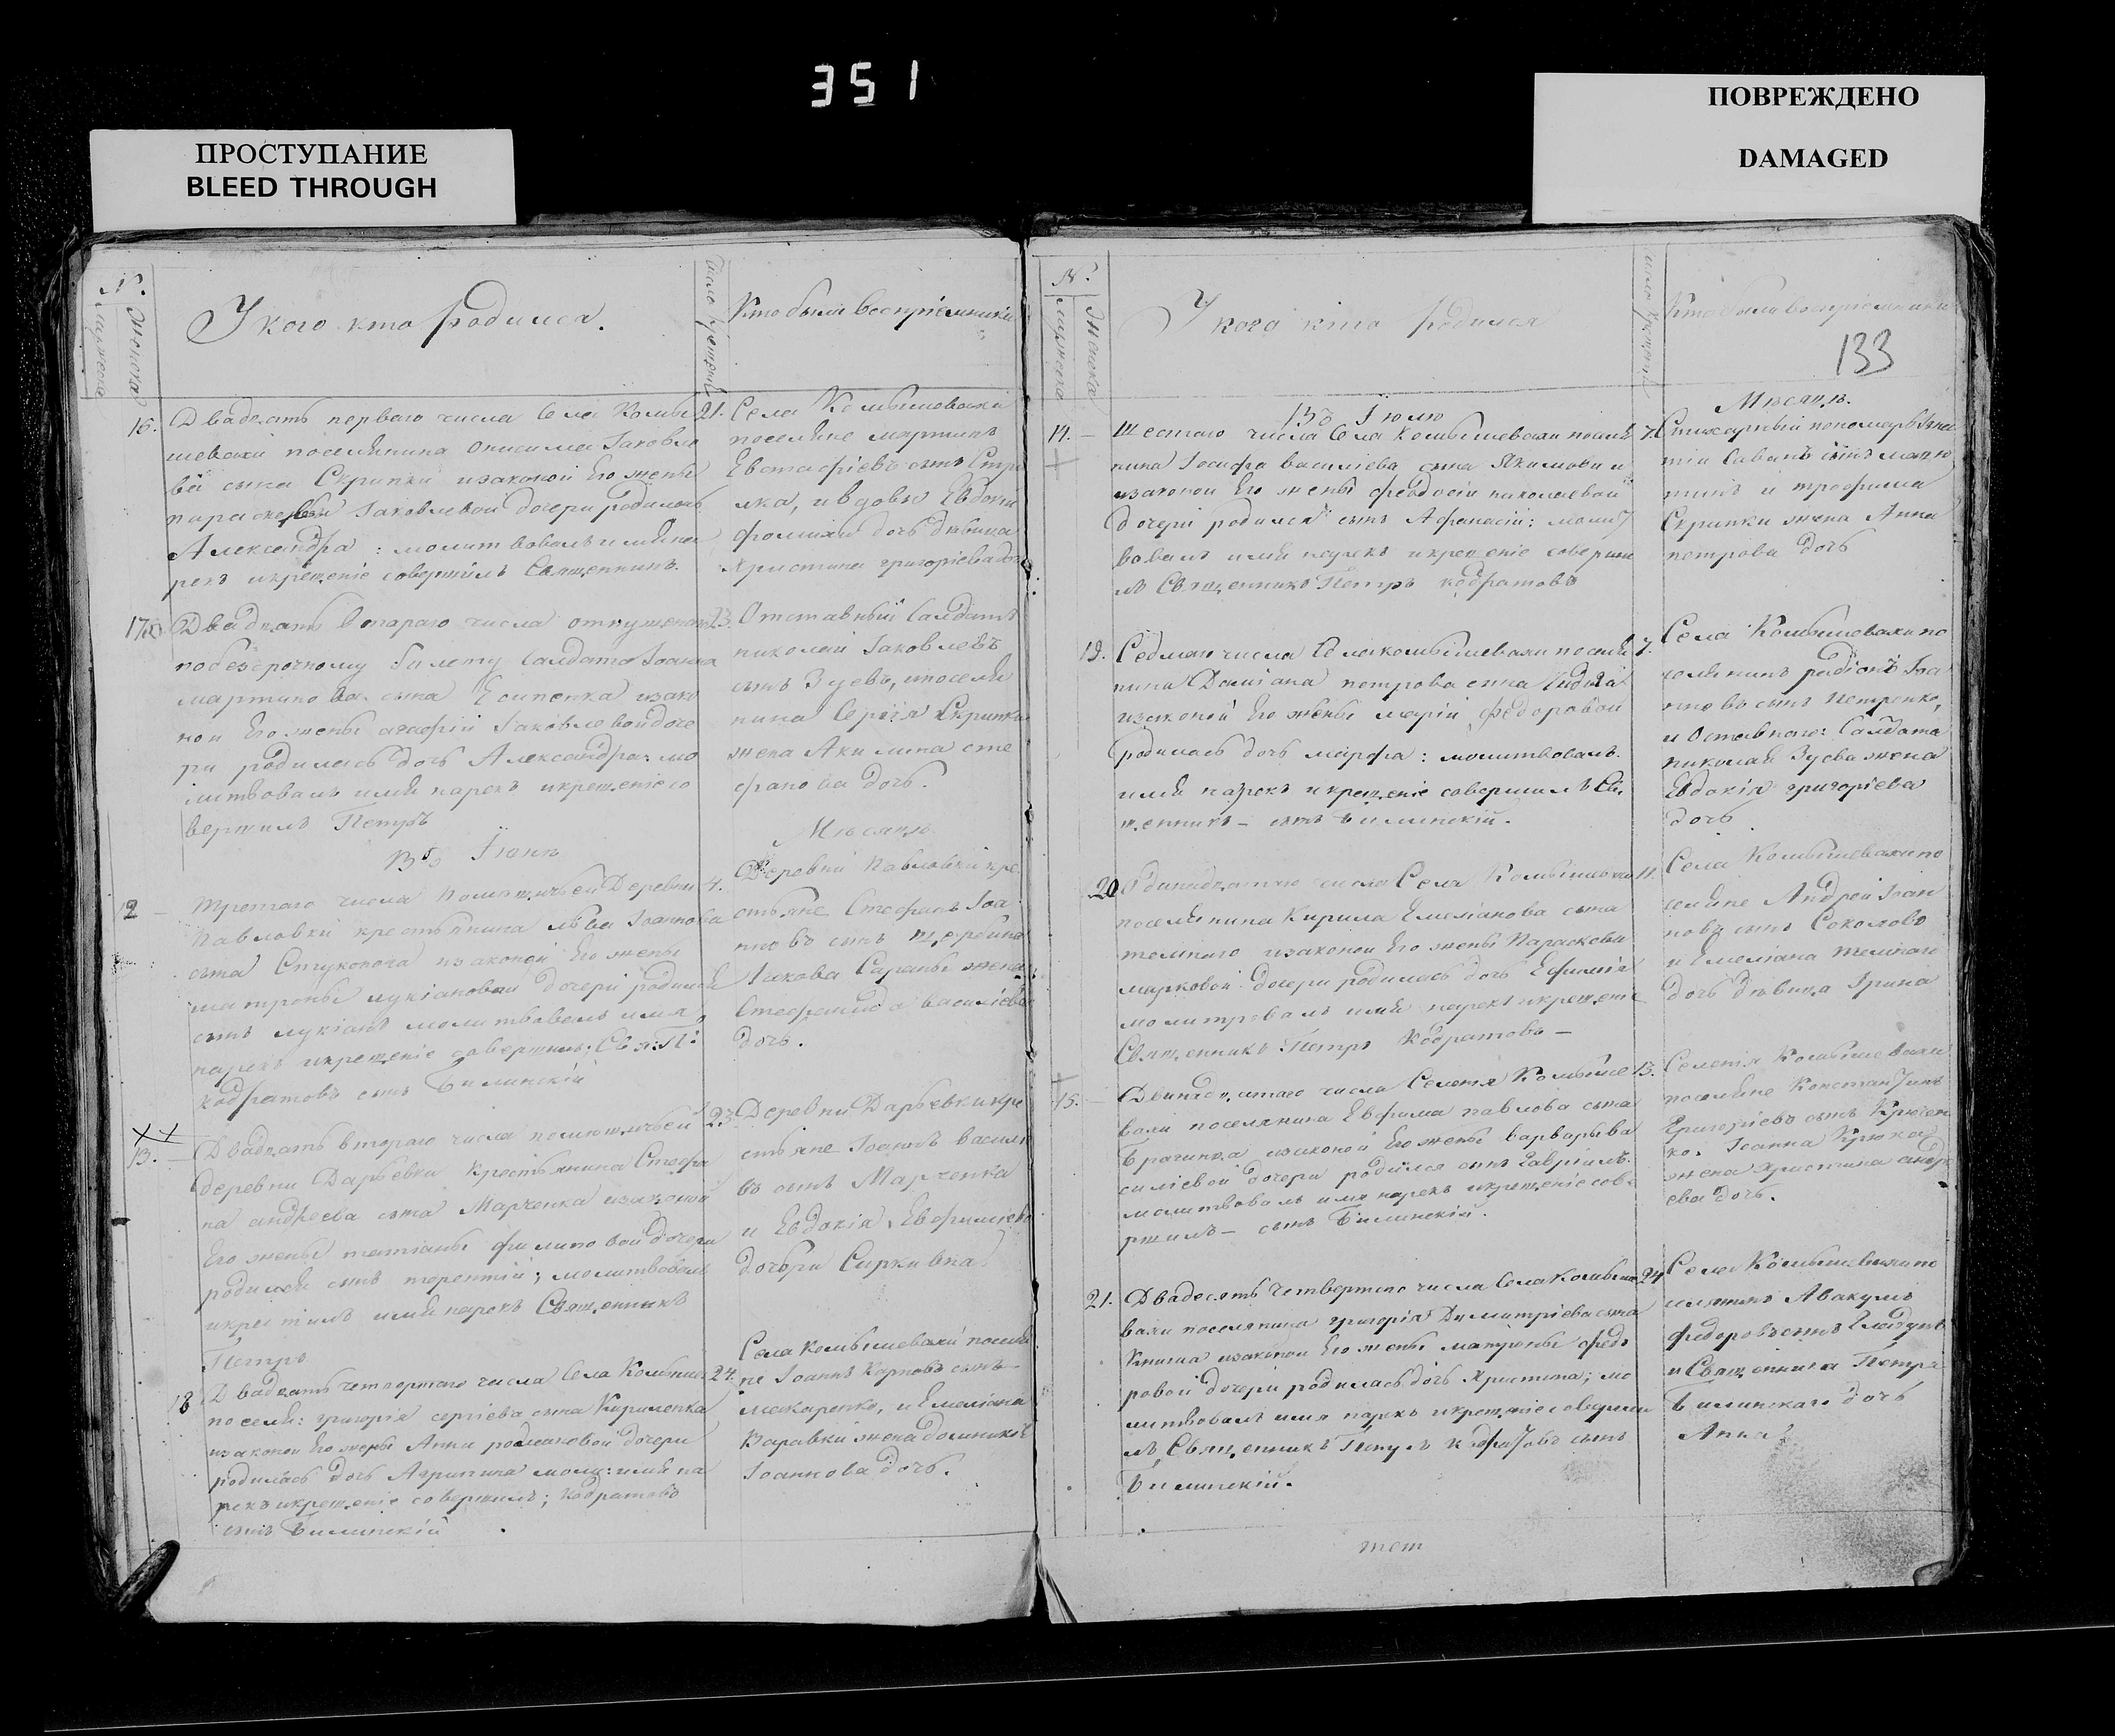 351
ПРОСТУПАНИЕ
BLEED THROUGH
ПОВРЕЖДЕНО
DAMAGED
№.
Мужеска
Женска
У кого кто родился.
Число крещенія
Кто были воспріемники
16.
Двадцать перваго числа Села Комы
21.
шевахи поселянина Онисима Іаковле
ва сына Скрипки изаконой Его жены
параскевы Іаковлевой дочери родилась
Александра : молитвовалъ и имя на
рекъ икрещеніе совершилъ Священникъ.
Села Комышевахи
поселяне мартинъ
Евстафіевъ сынъ
ика, ивдовы Евдокіи
дочь дѣвица
Христина григоріева дочь
17
Двадцать втораго числа отпущенаго
23.
побезсрочному билету Салдата Іоанна
мартинова сына Есипенка изако
ной Его жены агафіи Іаковлевой доче
ри родилась дочь Александра: мо
литвовалъ имя нарекъ икрещеніе со
вершилъ Петръ
Отставный Салдатъ
николай Іаковлевъ
сынъ Зуевъ, ипоселя
нина Сергія Скрипки
жена Акилина сте
фанова дочь.
Въ Іюнѣ
Мѣсяцѣ
12
третаго числа помѣщичьей Деревни
4.
Павловки крестьянина Льва Іоаннова
сына изаконой Его жены
матроны лукіановой дочери родился
сынъ лукіанъ молитвовалъ имя
нарекъ икрещеніе совершилъ: Свя: П:
кодратовъ сынъ Билинскій
Деревни Павловки кре
стьяне Стефанъ Іоа
нновъ сынъ щербина
Іакова Сараны жена
Стефанида василіева
дочь.
13.
Двадцать втораго числа помѣщичьей
23
деревни Дарьевки Крестьянина Стефа
на андреева сына Марченка изаконой
Его жены татіаны филиповой дочери
родился сынъ терентій; молитвовалъ
икрестилъ имя нарекъ Священникъ
Петръ
Деревни Дарьевки кре
стьяне Іоаннъ васильі
въ сынъ Марченка
и Евдокія Евфиміева
дочери Сиркивна
18
Двадцать четвертаго числа Села Комыше
24.
поселя: григорія сергіева сына Кириленка
изаконой Его жены Анны родіоновой дочери
родилась дочь Агрипина моли: имя на
рекъ икрещеніе совершилъ; кодратовъ
сынъ Билинскій
Села Комышевахи поселя
не Іоаннъ Карповъ сынъ
макаренко, и Емеліана
Варавки жена домникія
Іоаннова дочь.
№.
Мужеска
Женска
У кого кто родился
Число крещенія
Кто были воспріемники
133
Въ Іюлѣ
Мѣсяцѣ.
14.
Шестаго числа Села Комышевахи поселя
7.
нина Іосифа василіева сына Якимова и
изаконой Его жены феодосіи николаевой
дочери родился сынъ Афанасій: молит
вовалъ имя нарекъ икрещеніе соверши
лъ Священникъ Петръ кодратовъ
Стихарный пономарь Игна
тій Саванъ сынъ
и трофима
Скрипки жена Анна
петрова дочь
19.
Седмаго числа Села комышевахи поселя
7.
нина Даміана петрова сына
изаконой Его жены маріи федоровой
родилась дочь марфа: молитвовалъ
имя нарекъ икрещеніе совершилъ Свя
щенникъ – сынъ Билинскій.
Села Комышевахи по
селянинъ родіонъ Іоа
нновъ сынъ Петренко,
и Оставного: Салдата
николая Зуева жена
Евдокія григоріева
дочь
20
Одинадцатаго числа Села Комышевахи
11.
поселянина Кирила Емеліанова сына
темного изаконой Его жены Параскевы
марковой дочери родилась дочь Ефимія
молитвовалъ имя нарекъ икрещеніе
Священникъ Петръ Кодратовъ –
Села Комышевахи по
селяне Андрей Іоан
новъ сынъ Соколовъ
и Емеліана темного
дочь дѣвица Ірина
15.
Двинадцатаго числа Селенія Комыше
13.
вахи поселянина Евфима павлова сына
Брагинца изаконой Его жены варвары ва
силіевой дочери родился сынъ Гавріилъ.
молитвовалъ имя нарекъ икрещеніе сове
ршилъ – сынъ Билинскій.
Селенія Комышевахи
поселяне Константинъ
Григоріевъ сынъ Крючен
ко, Іоанна Крюка
жена Христина андре
ева дочь.
21.
Двадесять Четвертаго числа Села Комыше
24
вахи поселянина григорія Димитріева сына
Книша изаконой Его жены матроны федо
ровой дочери родилась дочь Христина; мо
литвовалъ имя нарекъ икрещеніе соверши
лъ Священникъ Петръ кодратовъ сынъ
Билинскій.
Села Комышевахи по
селянинъ Авакумъ
федоровъ сынъ
и Священника Петра
Билинскаго дочь
Анна